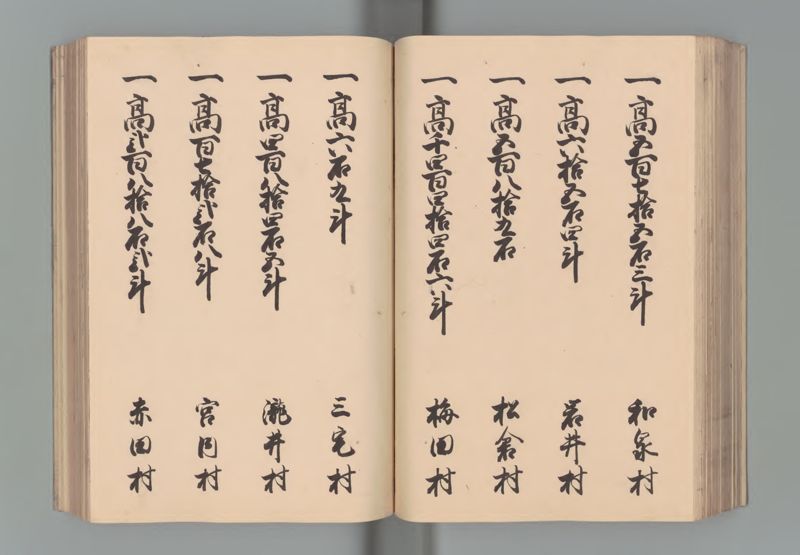 一高五百七拾五石三斗 和泉村
一高六拾五石四斗 岩井村
一高五百八拾九石 松倉村
一高千四百四拾四石六斗 梅田村
一高六石九斗 三宅村
一高四百八拾四石五斗 瀧井村
一高百七拾弐石八斗 宮円村
一高弐百八拾八石弐斗 赤田村